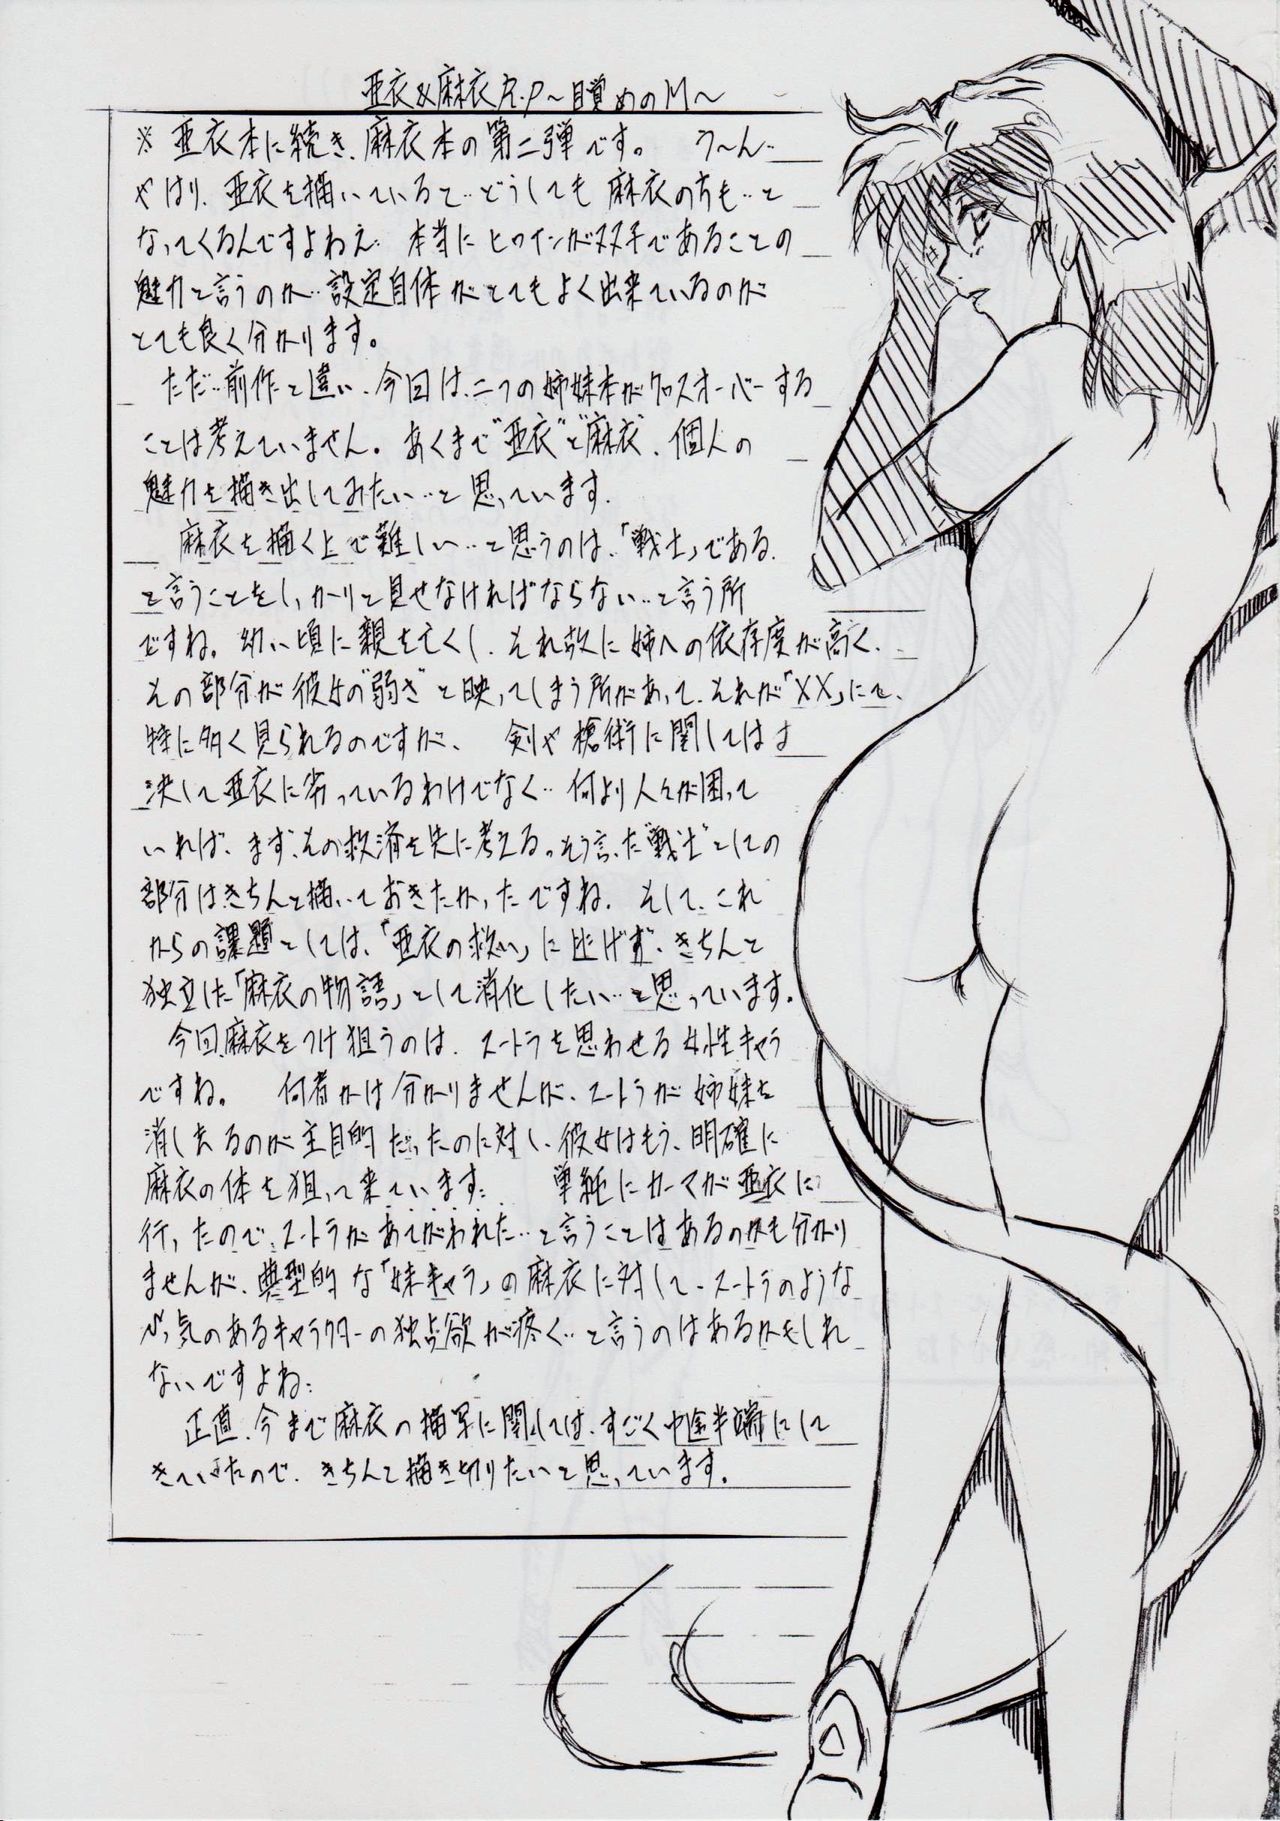 亜衣&麻衣R.P～目覚めのM～
※ 亜衣本に続き、麻衣本の第二弾です。 う～ん‥
やはり、亜衣を描いていると‥どうしても麻衣の方も‥と
なってくるんですよねえ‥ 本当にヒロインが双子であることの
魅力と言うのか‥設定自体がとてもよく出来ているのが
とても良く分かります。
ただ‥前作と違い、今回は、二つの姉妹本がクロスオーバーする
ことは考えていません。あくまで"亜衣"と"麻衣"、個人の
魅力を描き出してみたい‥と思っています。
麻衣を描く上で難しい‥と思うのは、「戦士」である
と言うことをしっかりと見せなければならない‥と言う所
ですね。幼い頃に親を亡くし、それ故に姉への依存度が高く、
その部分が彼女の"弱さ"と映ってしまう所があって、それが「XX」にて、
特に多く見られるのですが、 剣や槍術に関しては
決して亜衣に劣っているわけでなく‥何より人々が困って
いれば、まず、その救済を先に考える。そう言った"戦士"としての
部分はきちんと描いておきたかったですね。そして、これ
からの課題としては、「亜衣の救い」に逃げず、きちんと
独立した「麻衣の物語」として消化したい‥と思っています。
今回、麻衣をつけ狙うのは、スートラを思わせる女性キャラ
ですね。 何者かは分かりませんが、スートラが姉妹を
消し去るのが主目的だったのに対し、彼女はもう、明確に
麻衣の体を狙って来ています‥ 単純にカーマが亜衣に
行ったので、スートラがあてがわれた‥と言うことはあるのかも分かり
ませんが、典型的な「妹キャラ」の麻衣に対して、スートラのような
気のあるキャラクターの独占欲が疼く‥と言うのはあるかもしれ
ないですよね‥
正直、今まで麻衣の描写に関しては、すごく中途半端にして
きていたので、きちんと描き切りたいと思っています。